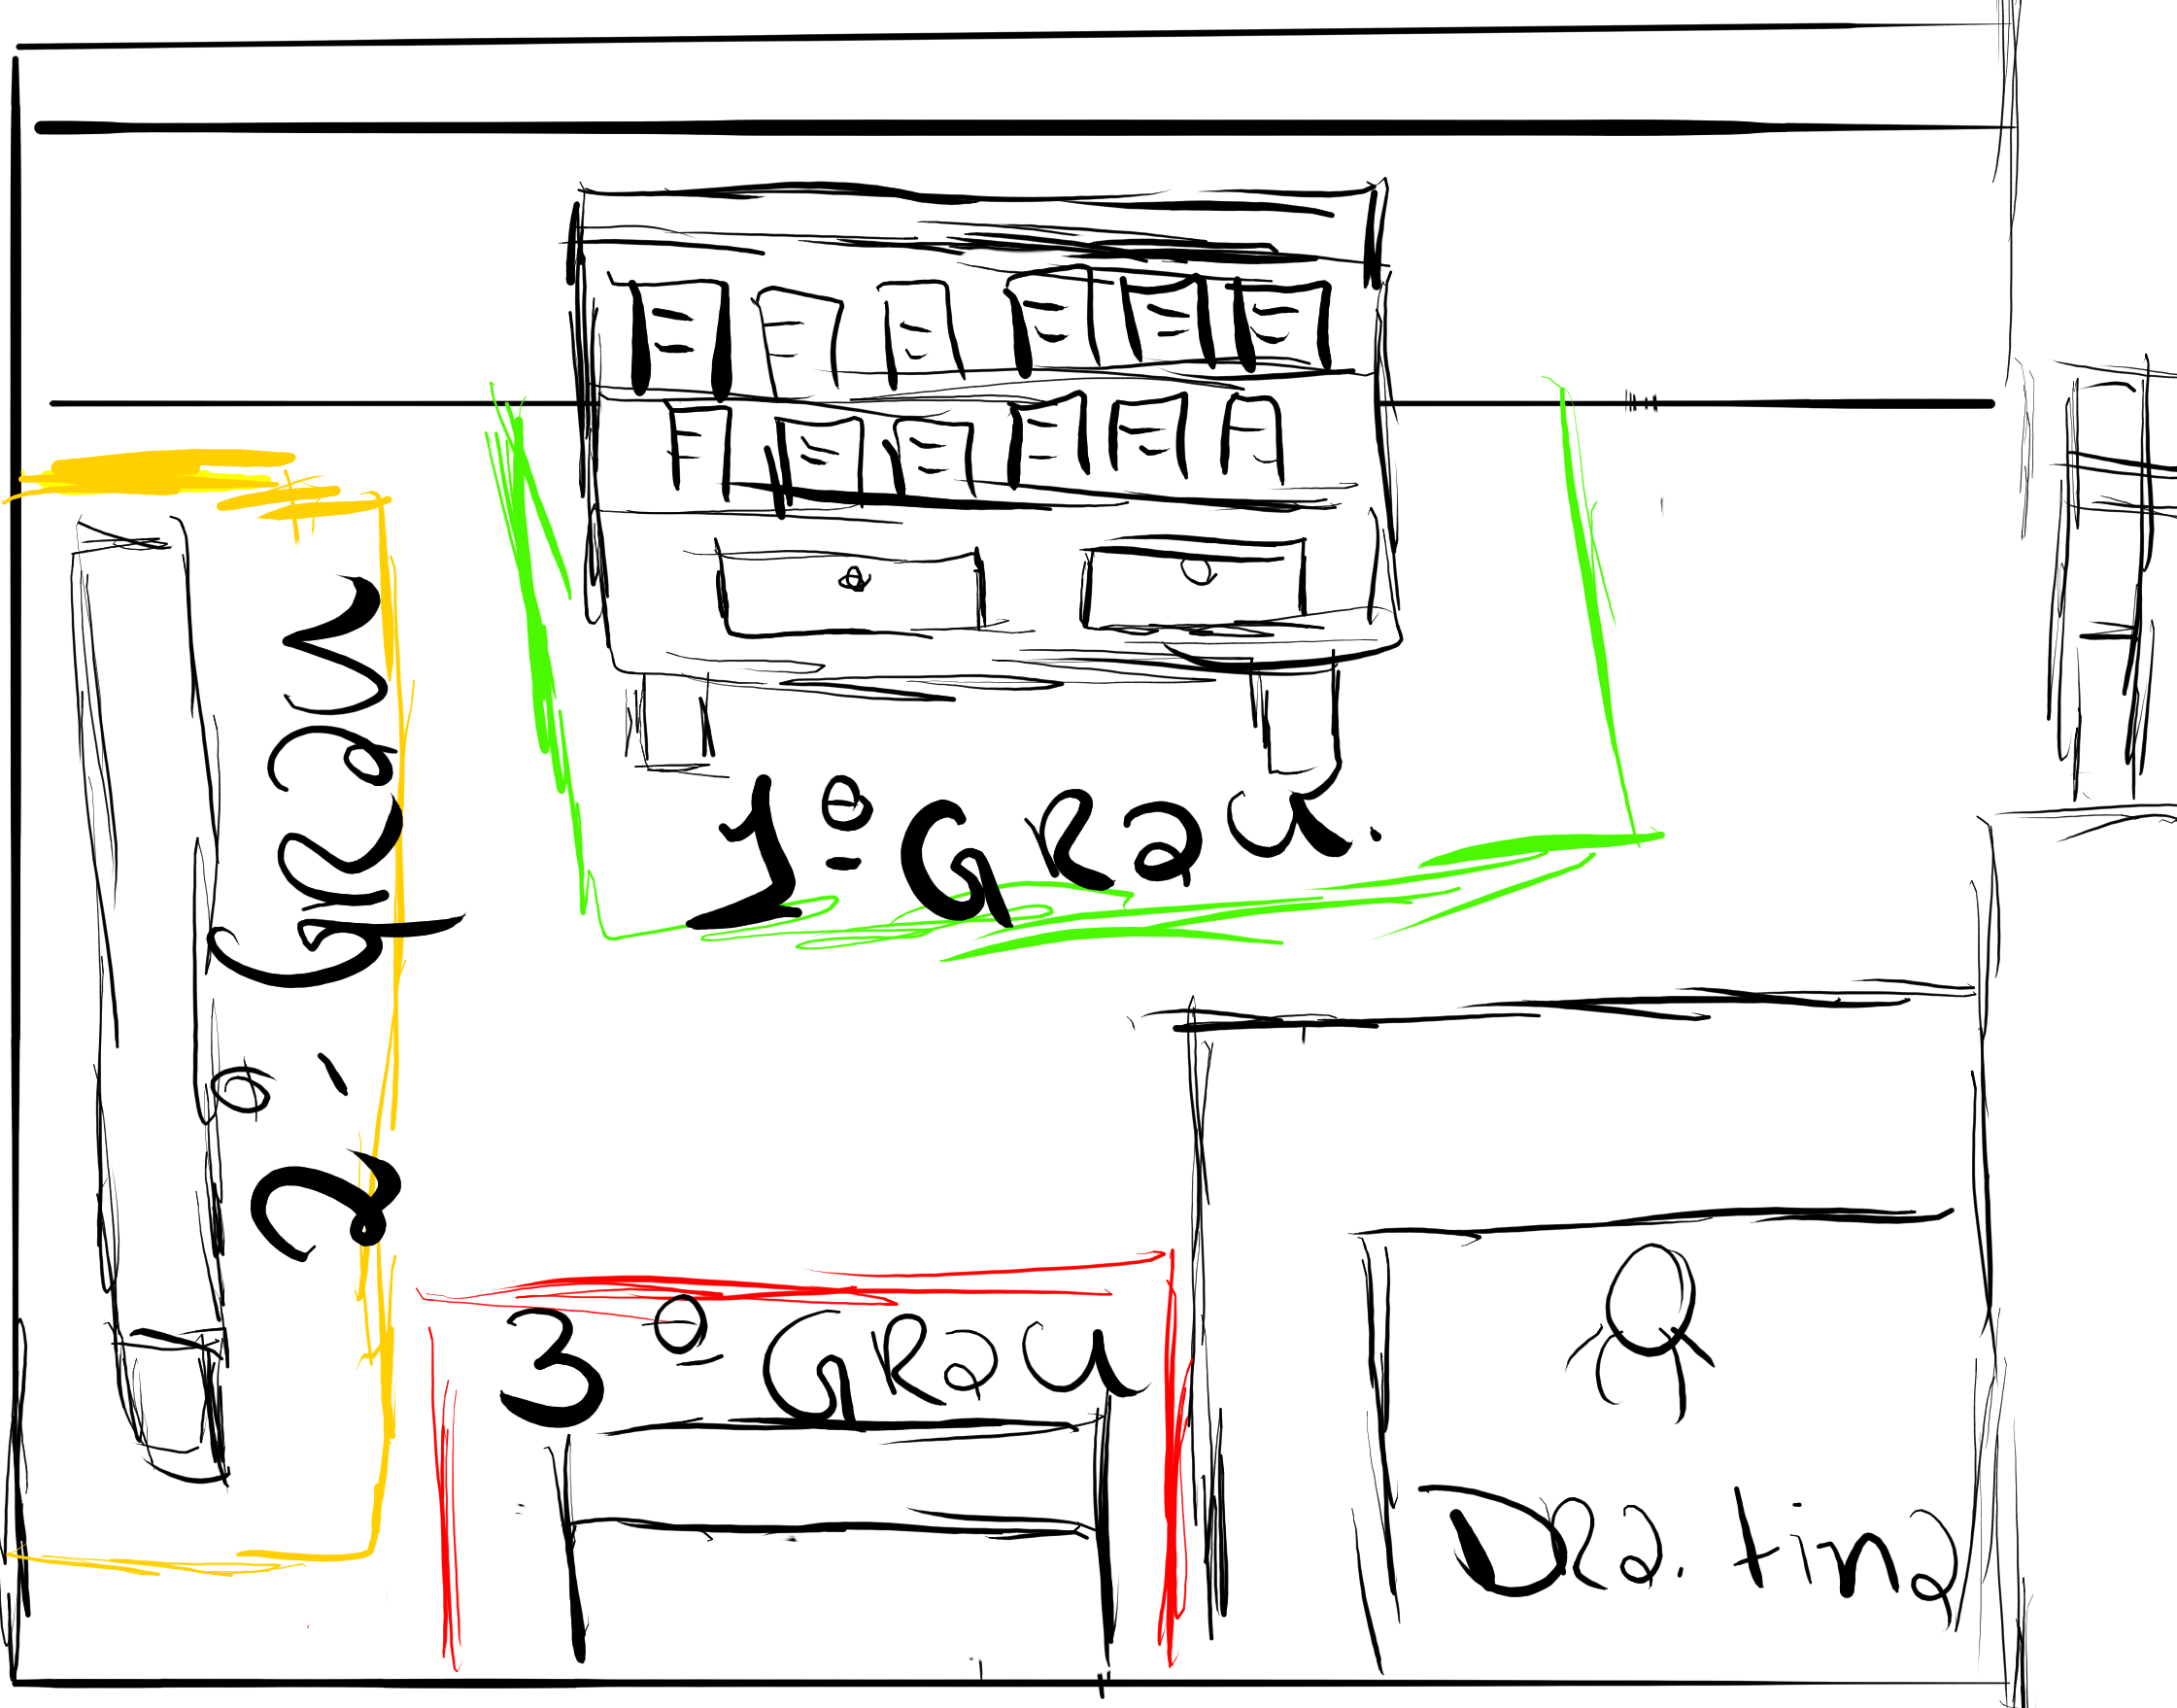 1º Grau.
2º Grau
3º Grau
Dra. tina